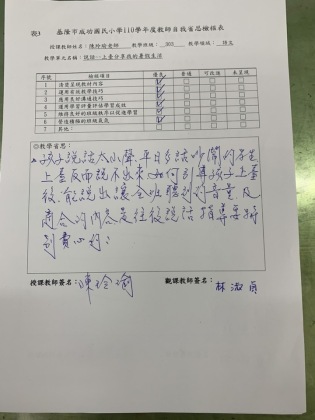 表3 基隆市成功國民小學110學年度教師自我省思檢核表
授課教師姓名：陳玲瑜老師 教學班級：303 教學領域：語文
教學單元名稱：說話—上臺分享我的暑假生活
序號 檢核項目 優良 普通 可改進 未呈現
1 清楚呈現教材內容 ✓
2 運用有效教學技巧 ✓
3 應用良好溝通技巧 ✓
4 運用學習評量評估學習成效 ✓
5 維持良好的班級秩序以促進學習 ✓
6 營造積極的班級氣氛 ✓
7 其他：
◎教學省思：
孩子說話太小聲，平日多話吵鬧的學生
上臺反而說不出來，如何引導孩子上臺
後，能說出讓全班聽到的音量及
適合的內容是往後說話指導要特
別費心的！
授課教師簽名：陳玲瑜 觀課教師簽名：林淑貞